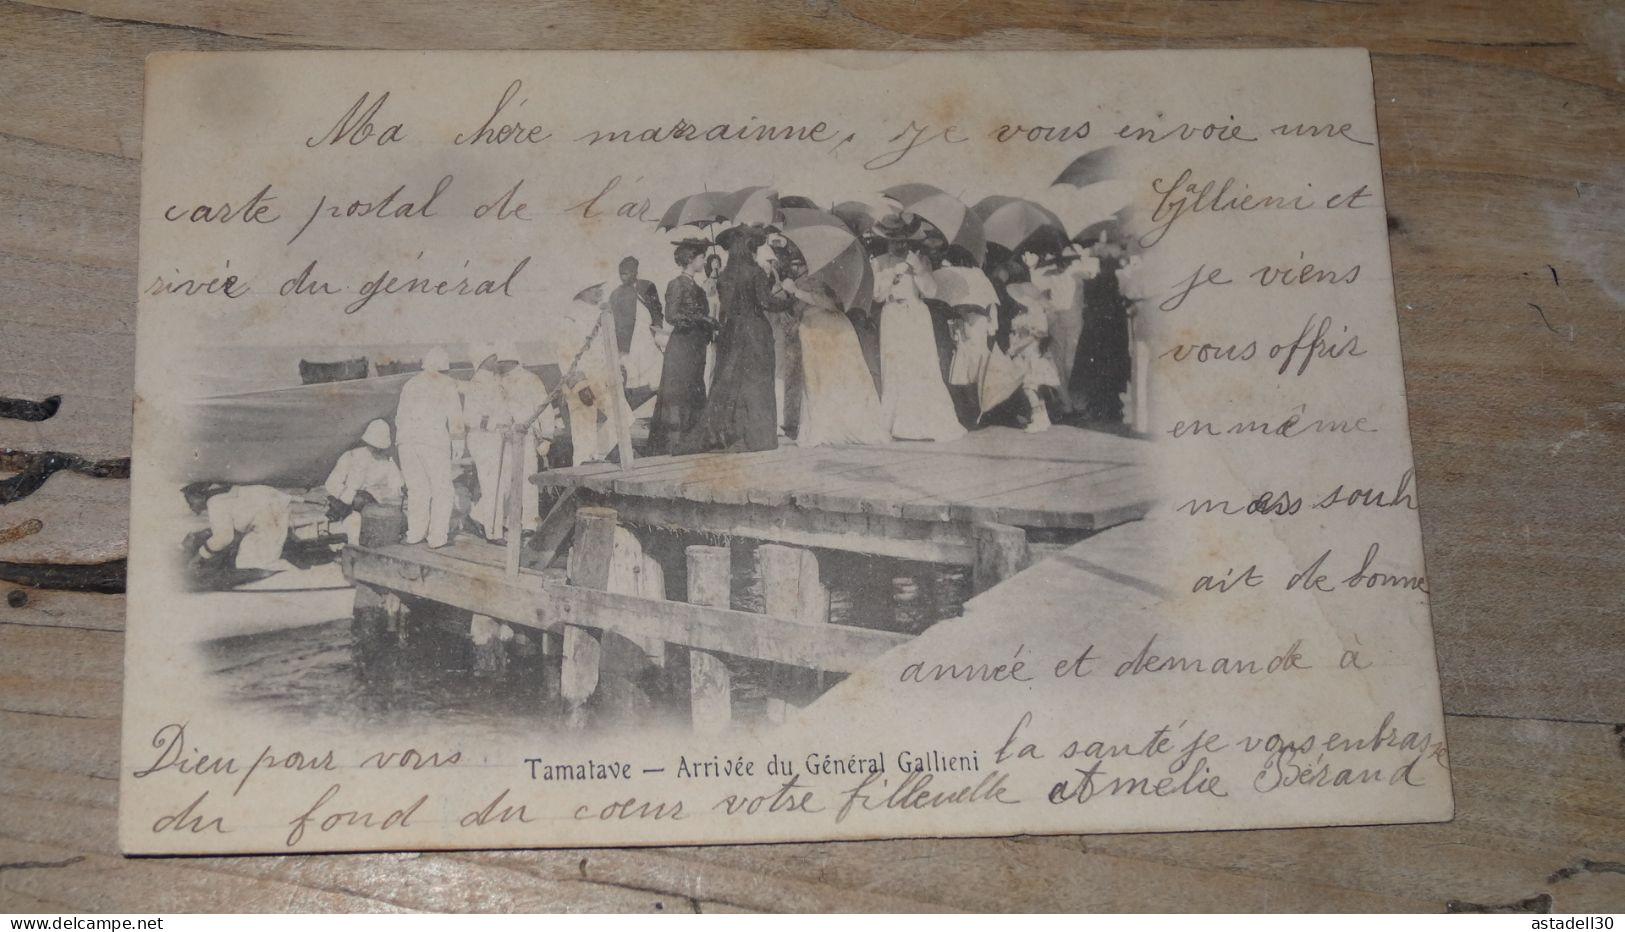 Ma chére marrainne, je vous envoie une
carte postal de l'ar
rivée du général
Gallieni et
je viens
vous offrir
en même
souh
ait de bonne
année et demande à
Dieu pour vous
la santé je vous enbras
se
du fond du coeur votre filleuelle Amelie Bérand
Tamatave — Arrivée du Général Gallieni
astadell30